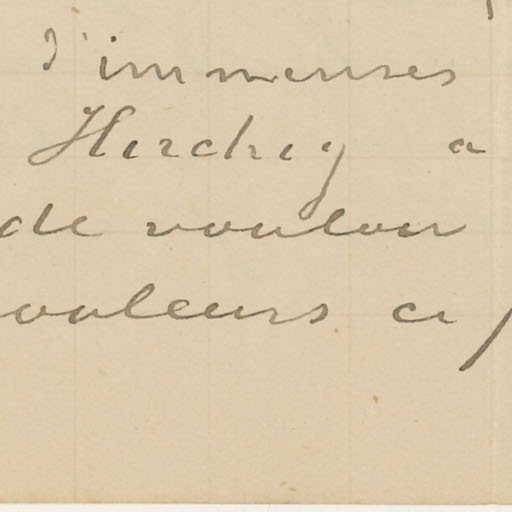 d'immenses
Hirchig a
de vouloir
couleurs ci